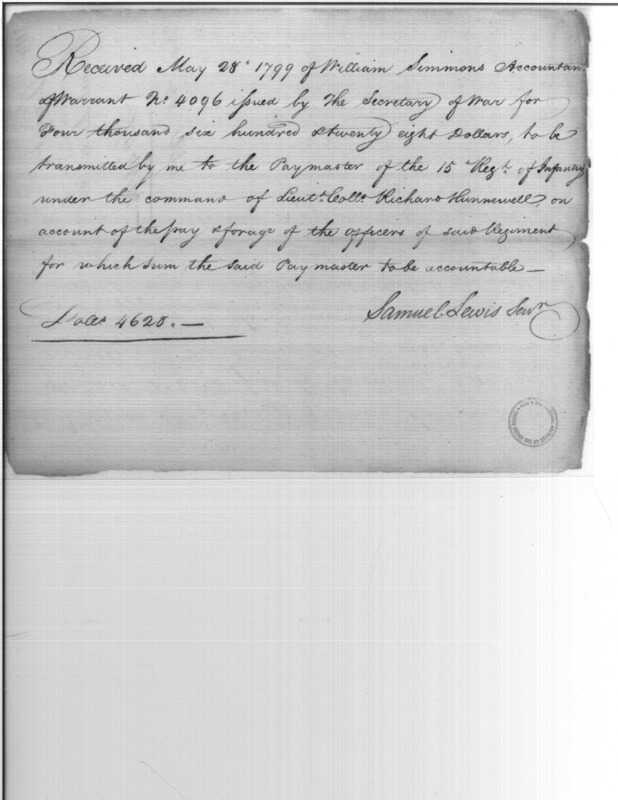 Received May 28t 1799 of William Simmons Accountan
a Warrant No. 4096 issued by The Secretary of War for
Four thousand six hundred & twenty eight Dollars, to be
transmitted by me to the Paymaster of the 15 Regt. of Infantry
under the command of Lieut. Coll. Richard Hunnewell, on
account of the pay & forage of the officers of said Regiment
for which sum the said Paymaster to be accountable —
Dolls 4628. —
Samuel Lewis Senr